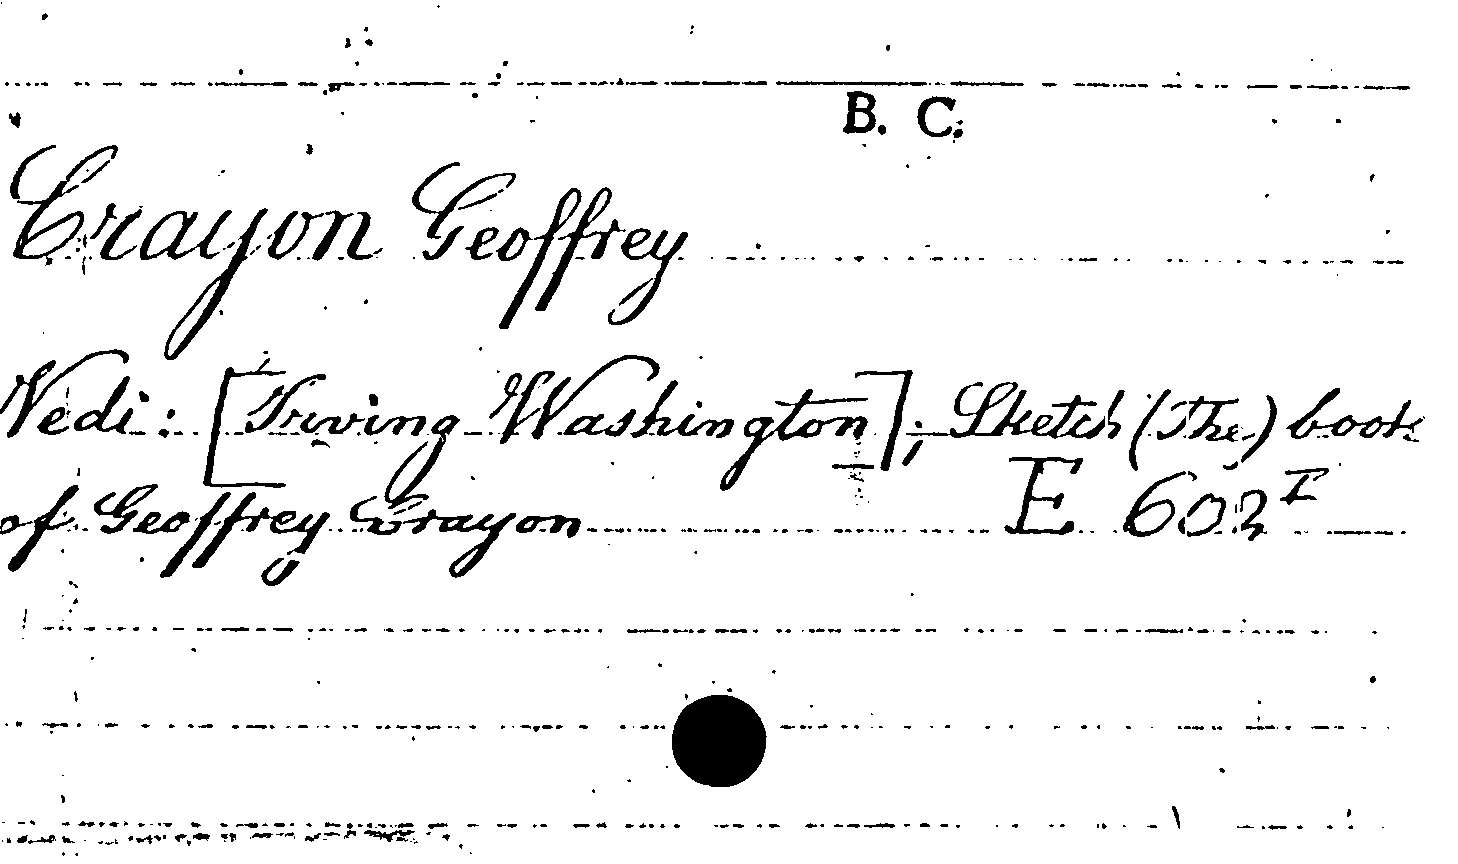 B. C.
Crayon Geoffrey
Vedi: [Irving Washington]; Sketch (The) book
of Geoffrey Crayon E 602 I